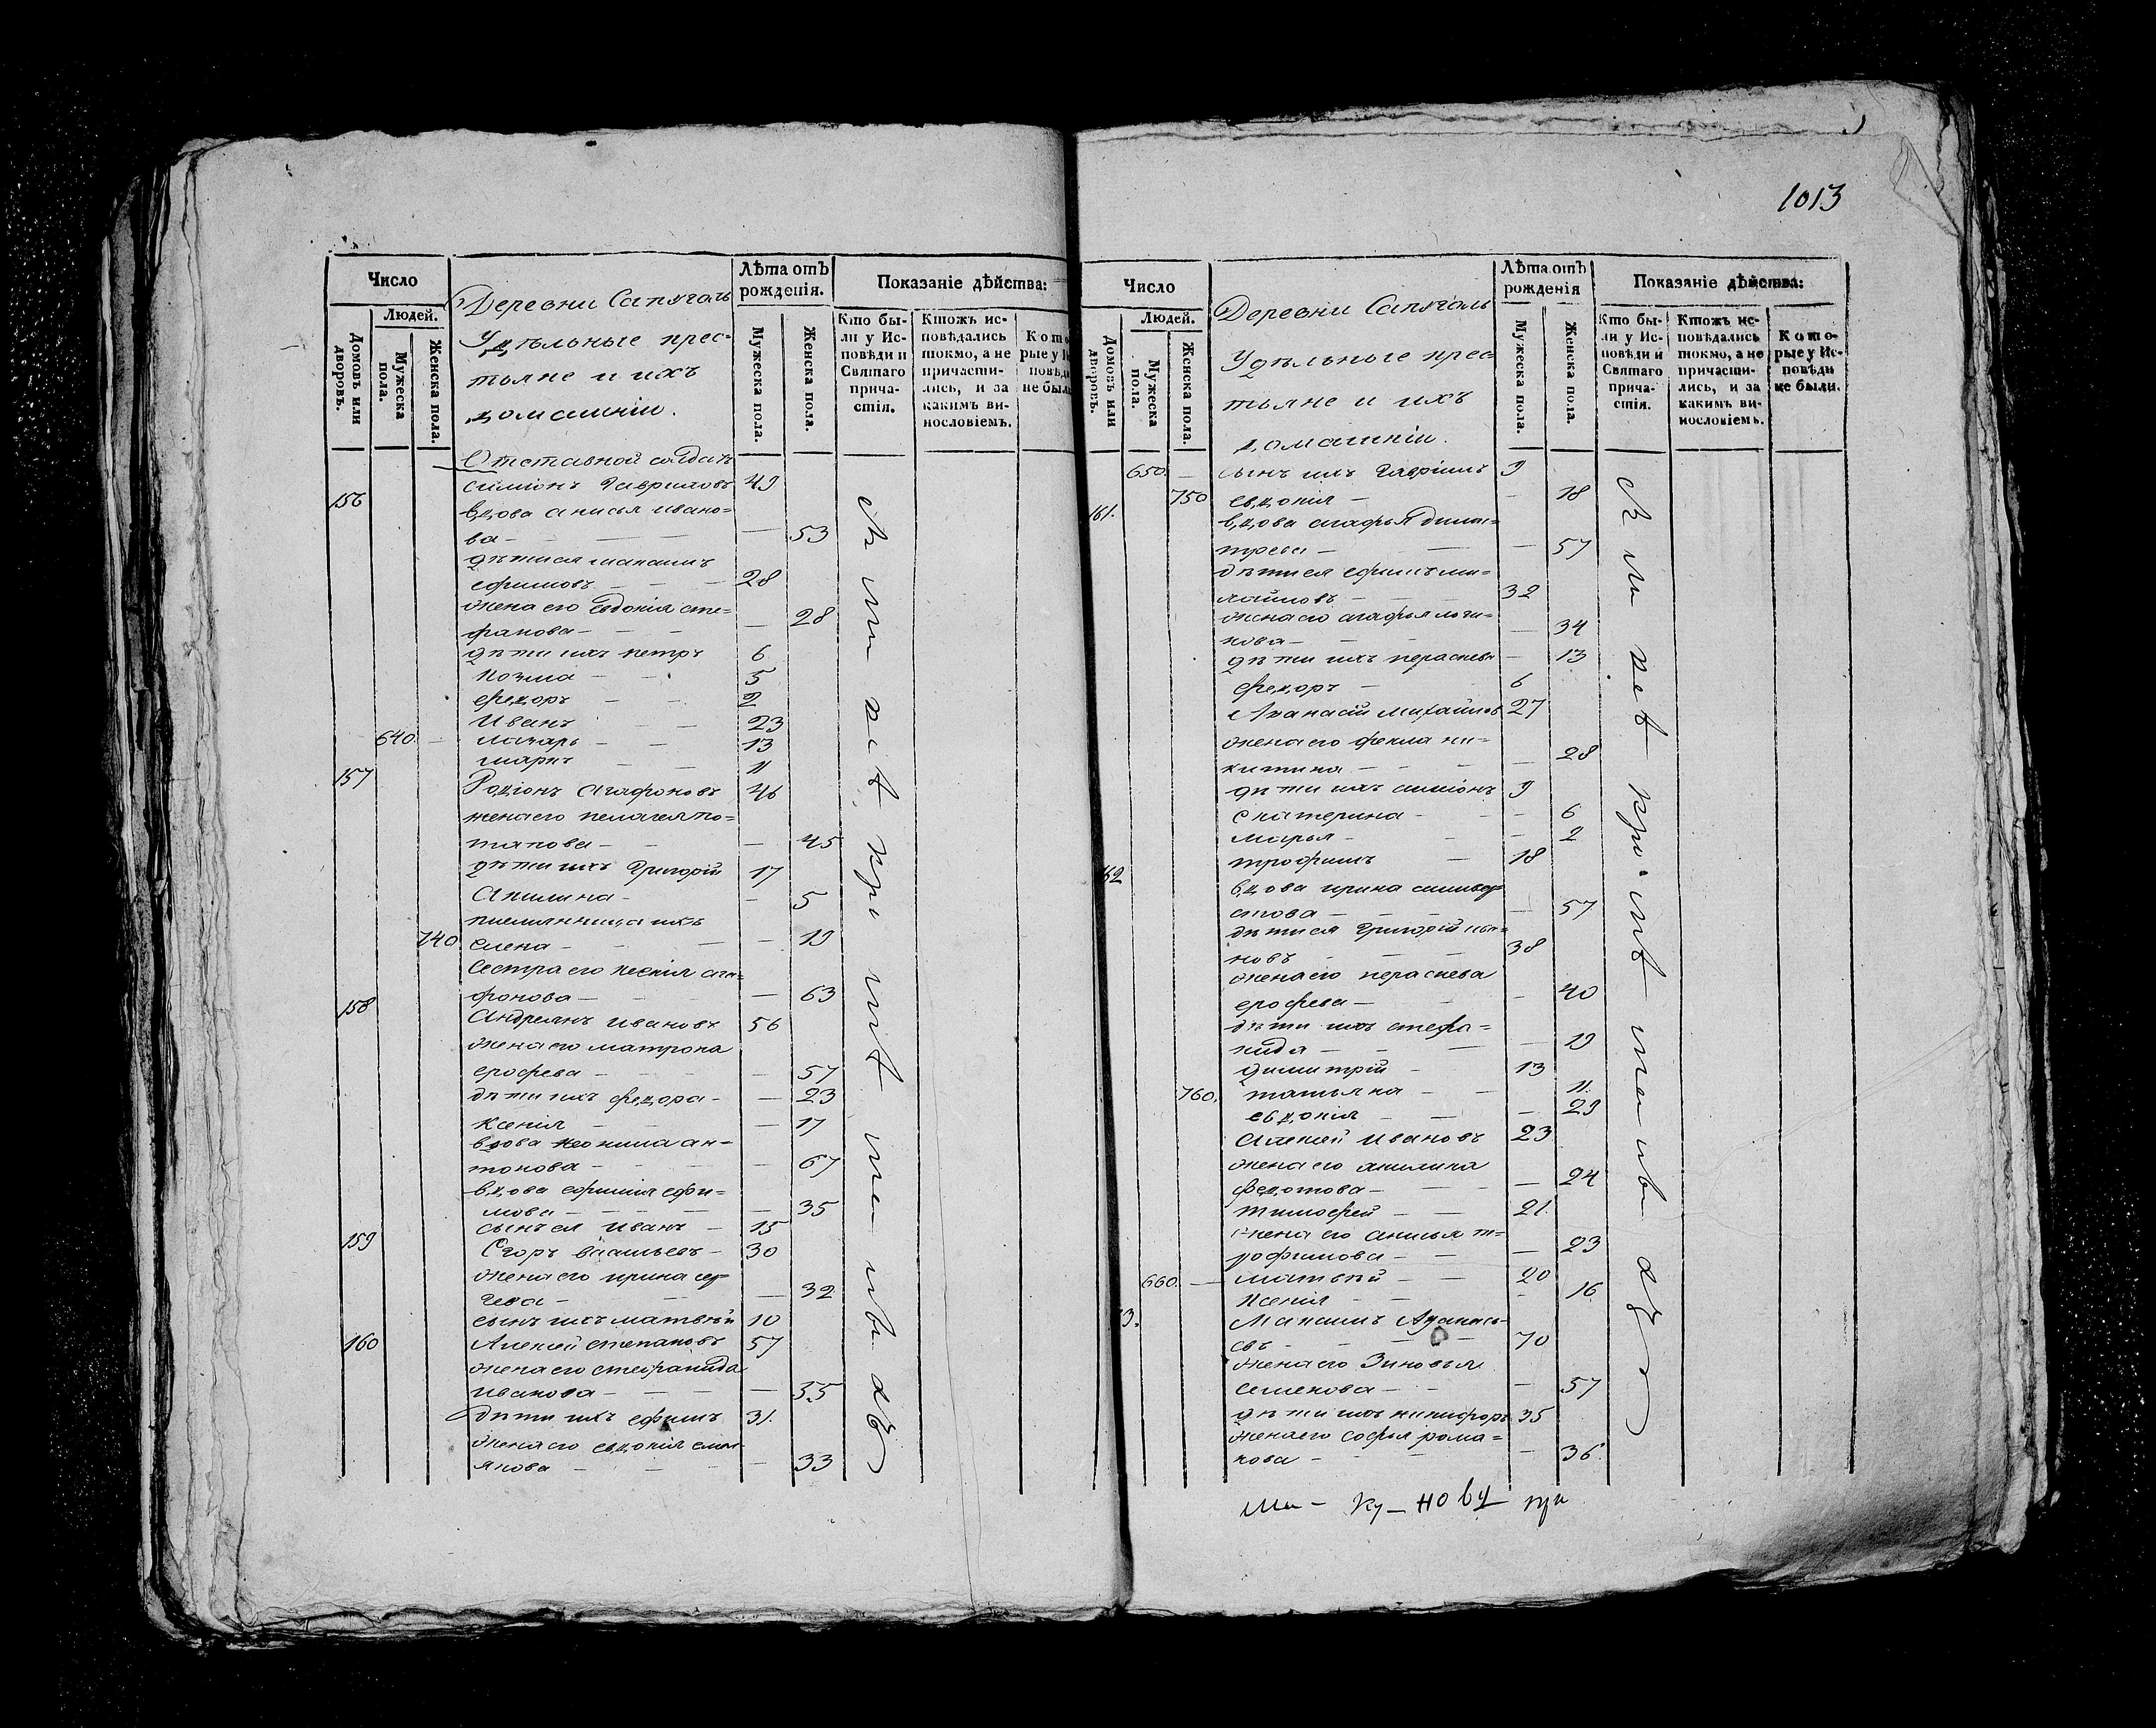 1013
Число
Людей.
Домовъ или дворовъ.
Мужеска пола.
Женска пола.
Деревни
Удѣльные крес-
тьяне и ихъ
домашніи.
Лѣта отъ
рожденія.
Мужеска пола.
Женска пола.
Показаніе дѣйства:
Кто бы-
ли у Ис-
повѣди и
Святаго
прича-
стія.
Ктожъ ис-
повѣдались
токмо, а не
причасти-
лись, и за
какимъ ви-
нословіемъ.
Кото
рые у И
повѣд
не был
Отставной солдатъ
симіонъ Гавриловъ 49
156 вдова анисья ивано-
ва — — 53
дѣти ея
ефимовъ — 28
жена его евдокія сте-
фанова — — 28
дѣти ихъ петръ 6
козма — 5
федоръ — 2
Иванъ — 23
640. лазарь — 13
маркъ — 11
157 Родіонъ Агафоновъ 46
жена его пелагея по-
тапова — — 45
дѣти ихъ Григорій 17
Акилина — — 5
племянница ихъ
740 Елена — — 19
Сестра его ксенія ага-
фонова — — 63
158 Андреянъ Ивановъ 56
жена его матрона
ерофева — — 57
дѣти ихъ федора — — 23
Ксенія — — 17
вдова неонила ан-
тонова — — 67
вдова ефимія ефи-
мова — — 35
сынъ ея Иванъ — 15
159 Егоръ Васильевъ — 30
жена его ирина сер-
геева — — 32
сынъ ихъ матвѣй 10
160 Алексѣй степановъ 57
жена его стефанида
Иванова — — 55
дѣти ихъ ефимъ 31.
жена его евдокія емел
янова — — 33
Число
Людей.
Домовъ или дворовъ.
Мужеска пола.
Женска пола.
Деревни
Удѣльные крес-
тьяне и ихъ
домашніи.
Лѣта отъ
рожденія
Мужеска пола.
Женска пола.
Показаніе дѣйства:
Кто бы-
ли у Ис-
повѣди и
Святаго
прича-
стія.
Ктожъ ис-
повѣдались
токмо, а не
причасти-
лись, и за
какимъ ви-
нословіемъ.
Кото-
рые у Ис-
повѣди
не были.
650. — сынъ ихъ Гавріилъ 9
750 евдокія — — 18
161. вдова агафья дими-
треева — — 57
дѣти ея ефимъ ми-
хайловъ — 32
жена его агафья логи-
нова — — 34
дѣти ихъ параскева — 13
федоръ — 6
Аѳанасій Михайловъ 27
жена его фекла ни-
китина — — 28
дѣти ихъ симіонъ 9
Екатерина — — 6
марья — — 2
трофимъ — 18
62 вдова ирина
— — 57
дѣти ея Григорій ива-
новъ — 38
жена его параскева
ерофева — — 40
дѣти ихъ стефа-
нида — — 19
димитрій — 13
760. татьяна — — 11.
евдокія — — 29
Алексѣй Ивановъ 23
жена его акилина
федотова — — 24
тимофей — 21.
жена его анисья т-
рофимова — — 23
660. — матвѣй — 20
Ксенія — — 16
3. Аѳанась-
евъ — 70
жена его Зиновья
семенова — — 57
дѣти ихъ никифоръ 35
жена его софья рома-
нова — — 36.